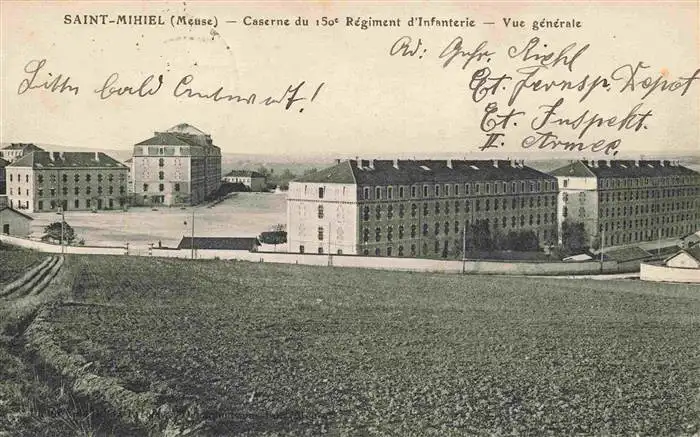 SAINT-MIHIEL (Meuse) — Caserne du 150e Régiment d'Infanterie — Vue générale
Ad: Gefr. Riehl
Bitte bald Antwort!
Et. Fernsp. Depot
Et. Inspekt.
II. Armee